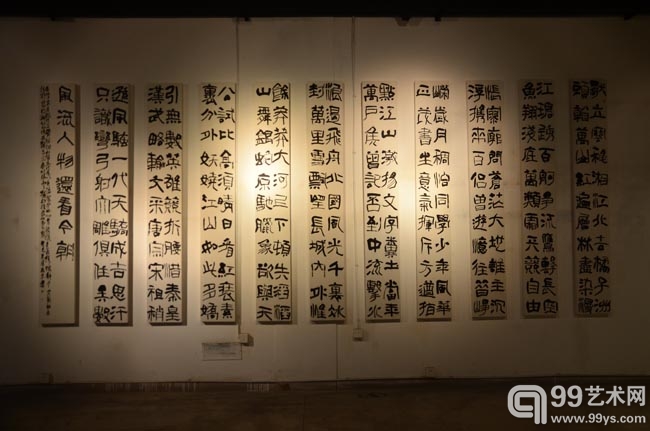 獨立寒秌湘江北去橘子洲
頭看萬山紅遍層林盡染漫
江碧透百舸爭流鷹擊長空
魚翔淺底萬類霜天競自由
悵寥廓問蒼茫大地誰主沉
浮攜來百侶曾遊憶往昔崢
嶸歲月稠恰同學少年風華
正茂書生意氣揮斥方遒指
點江山激揚文字糞土當年
萬戶侯曾記否到中流擊水
浪遏飛舟北國風光千裏冰
封萬里雪飄望長城內外惟
餘莽莽大河上下頓失滔滔
山舞銀蛇原馳臘象欲與天
公試比高須晴日看紅裝素
裹分外妖嬈江山如此多嬌
引無數英雄競折腰惜秦皇
漢武略輸文采唐宗宋祖稍
遜風騷一代天驕成吉思汗
只識彎弓射大雕俱往矣數
風流人物還看今朝
99艺术网
www.99ys.com